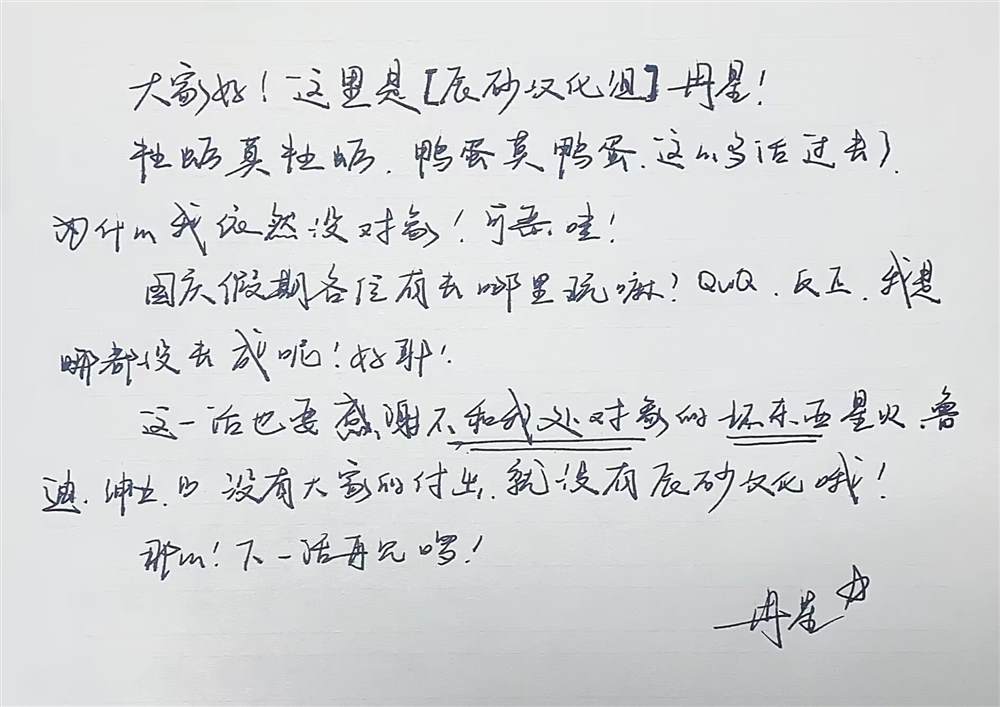 大家好！这里是[辰砂汉化组]冉星！
牡蛎莫牡蛎.鸭蛋莫鸭蛋.这么多话过去了.
为什么我依然没对象！可恶哇！
国庆假期各位有去哪里玩嘛？QwQ.反正.我是
哪都没去成呢！好耶！
这一话也要感谢不和我处对象的坏东西星火.鲁
迪.绅士.B 没有大家的付出.就没有辰砂汉化哦！
那么！下一话再见啰！
冉星